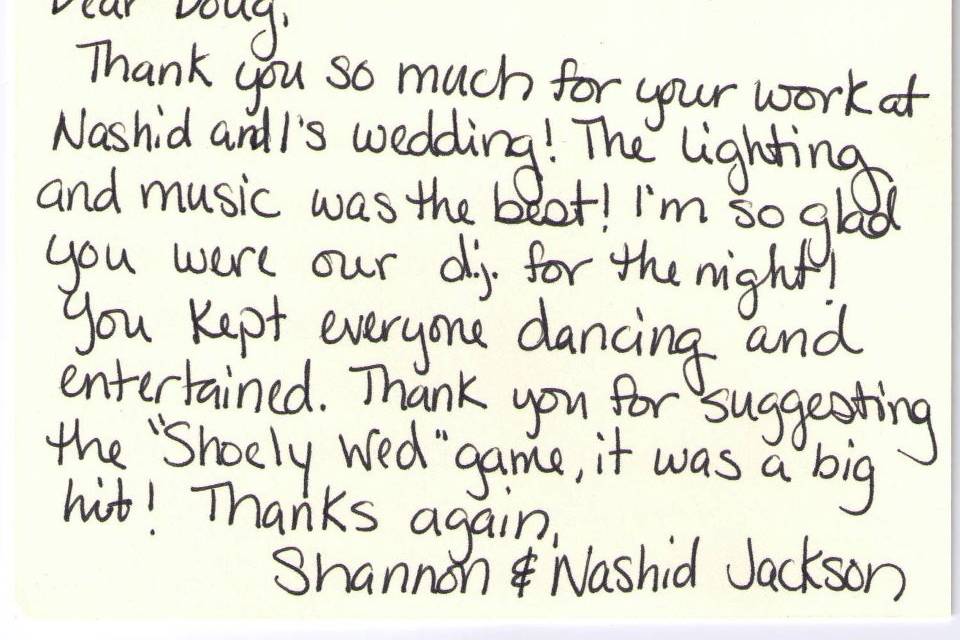 Dear Doug,
Thank you so much for your work at
Nashid and I's wedding! The lighting
and music was the best! I'm so glad
you were our d.j. for the night!
You kept everyone dancing and
entertained. Thank you for suggesting
the "Shoely Wed" game, it was a big
hit! Thanks again,
Shannon & Nashid Jackson